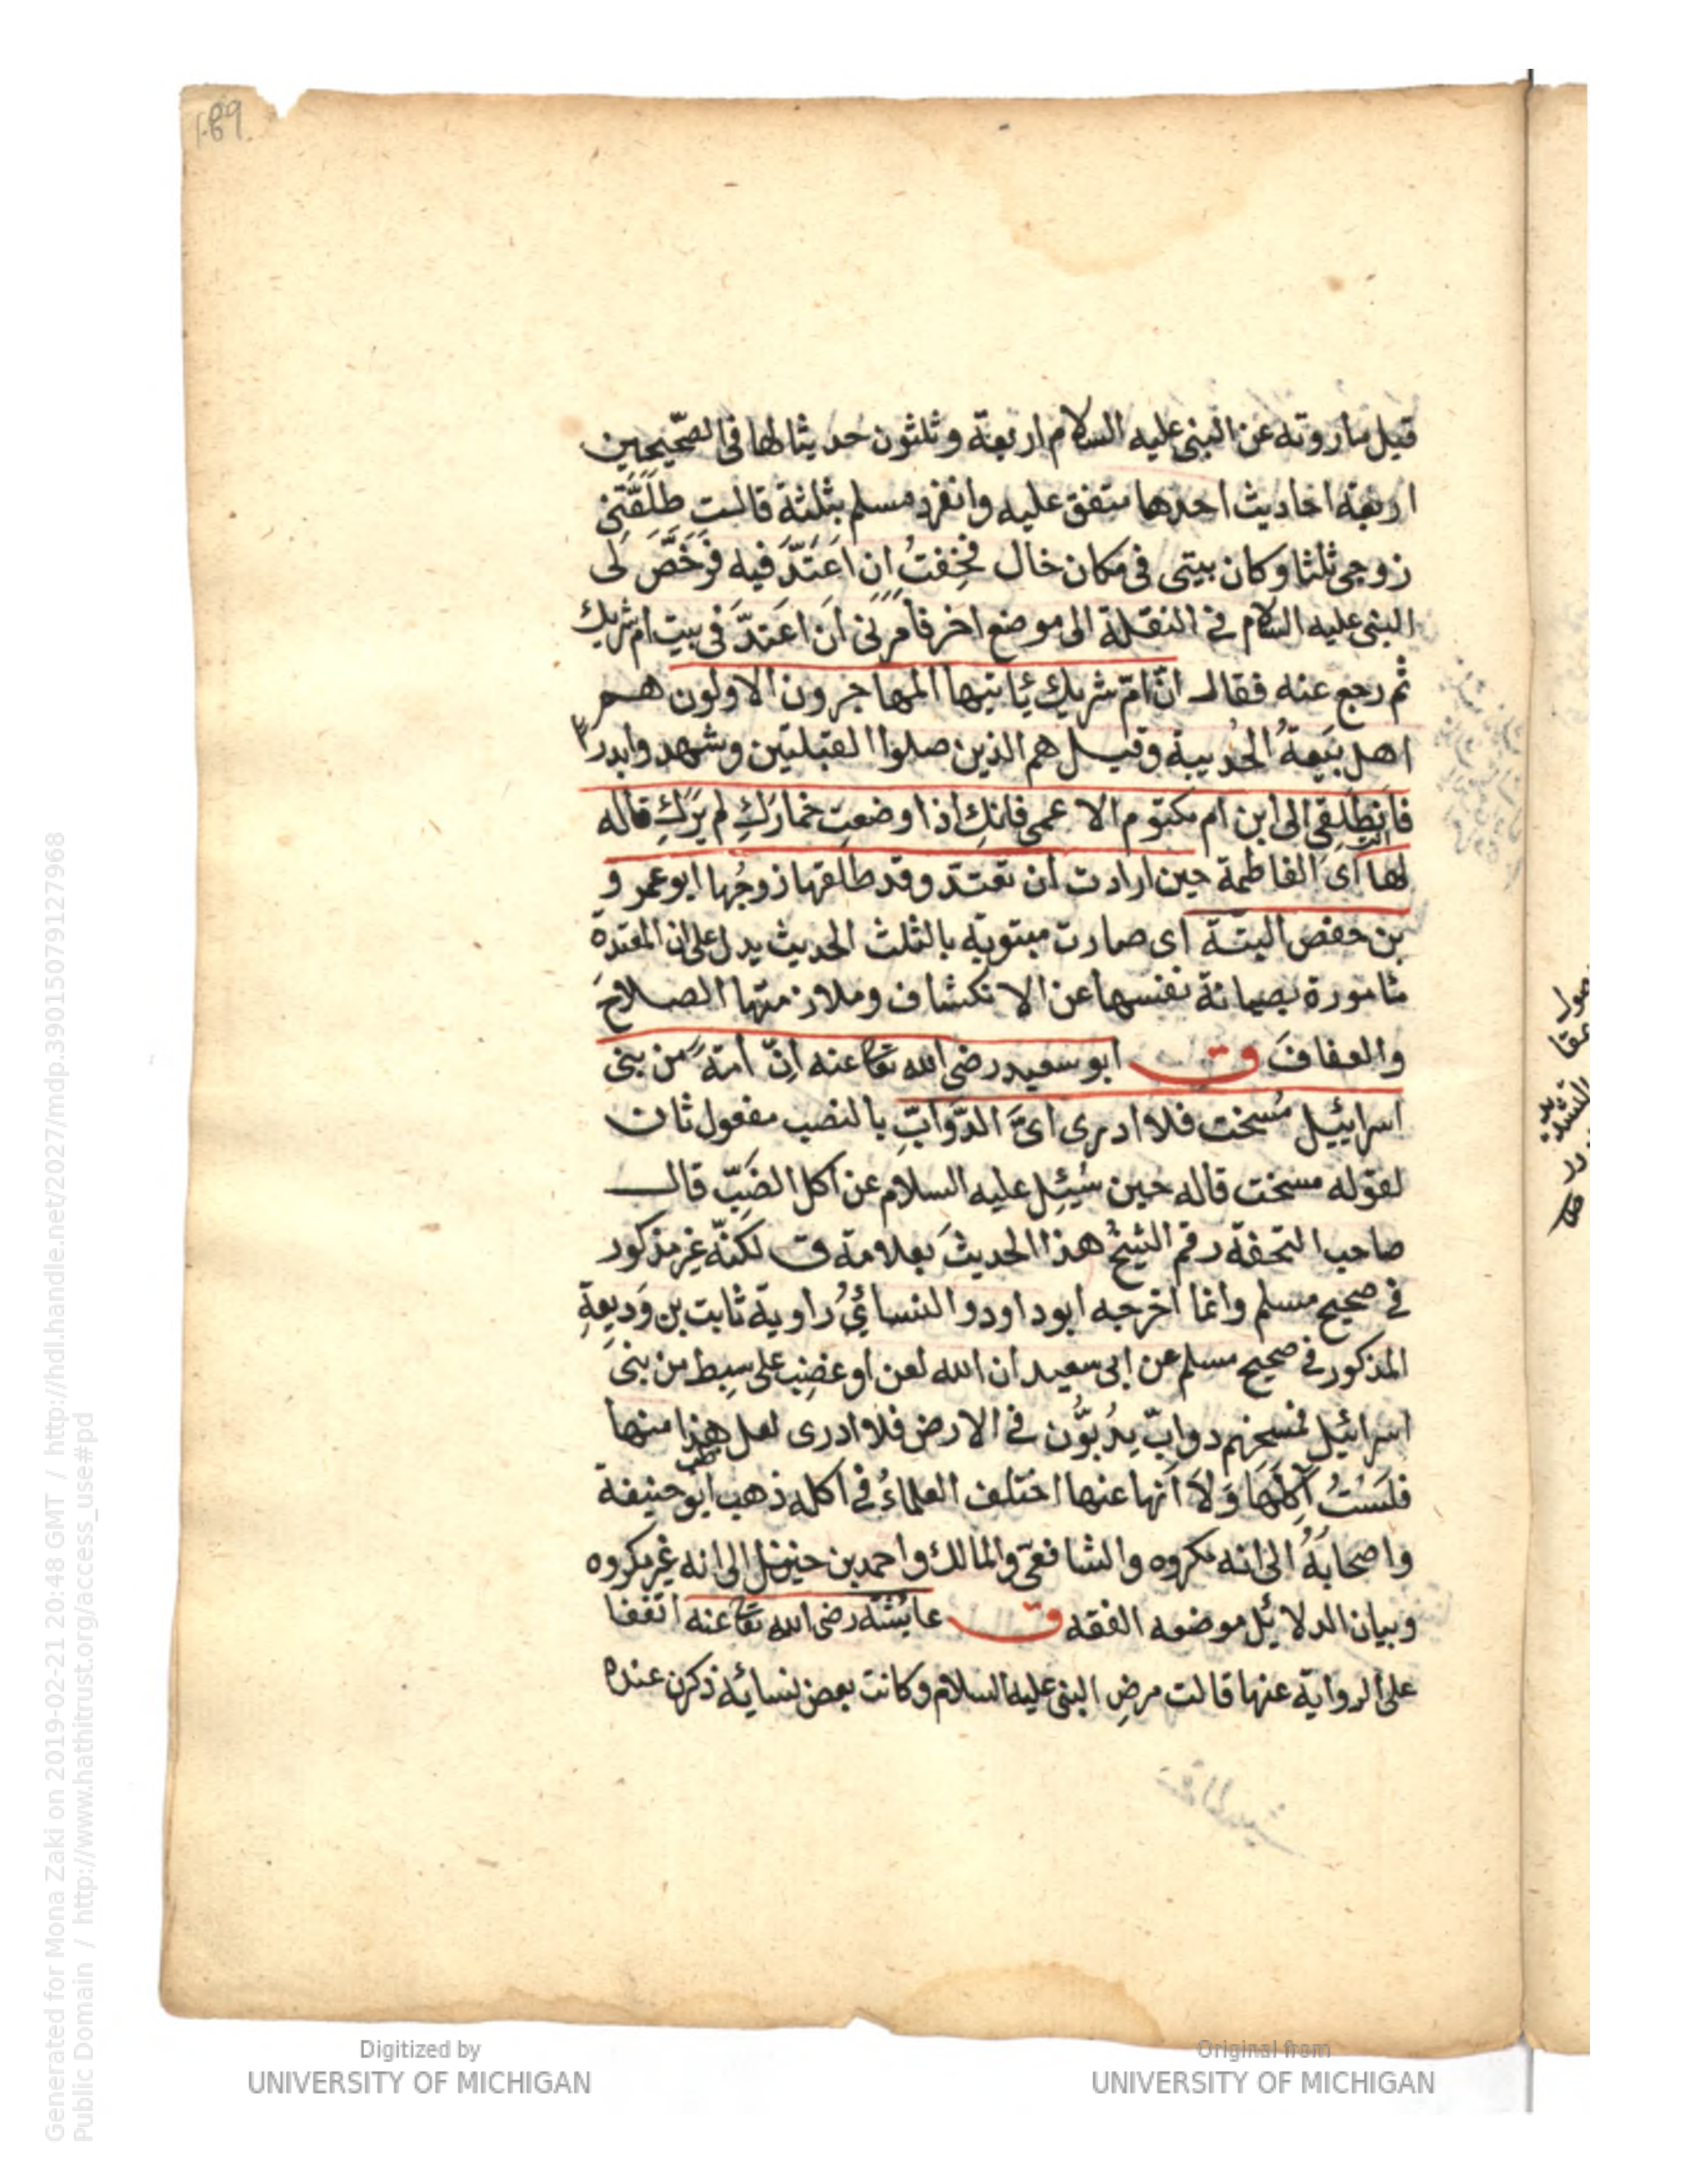 189
قيل ما روته عن النبى عليه السلام اربعة و ثلثون حديثا لها فى الصّحيحين
اربعة احاديث احدها متفق عليه وانفرد مسلم بثلثة قالت طَلَّقَنِى
زوجى ثلثا وكان بيتى فى مكان خال فخِفتُ ان اَعتَدَّ فيه فَرَخَّصَ لى
النبى عليه السلام فى النقلة الى موضع اخر فامرنى ان اعتدّ فى بيت ام شريك
ثم رجع عنه فقال انّ امّ شريك يأتيها المهاجرون الاولون هم
اهل بَيعةُ الحُديبية وقيل هم الذين صلوا القبلتين وشهدوا بدرا
فانطلقى الى ابن ام مكتوم الاعمى فانكِ اذا وضعتِ خمارَكِ لم يَرَكِ قاله
لها اى الفاطمة حين ارادت ان تعتدّ وقد طلقها زوجُها ابو عمرو
بن حفص البتّة اى صارت مبتوتة بالثلث الحديث يدل على ان المعتدة
مأمورة بصيانة نفسها عن الانكشاف وملازمتها الصلاحَ
والعفافَ ق ابو سعيد رضى الله تعا عنه اِنّ امّة من بنى
اسراييل مُسخت فلا ادرى اىَّ الدّوابِّ بالنصب مفعول ثان
لقوله مسخت قاله حين سُئِل عليه السلام عن اكل الضَبّ قال
صاحب التحفة رقم الشيخُ هذا الحديثَ بعلامة ق لكنّه غير مذكور
فى صحيح مسلم وانما اخرجه ابو داود والنسائىُ راوية ثابت بن وَديعةِ
المذكور فى صحيح مسلم عن ابى سعيد ان الله لعن او غضِب على سِبط من بنى
اسرائيل فمسخهم دوابّ يدُبّون فى الارض فلا ادرى لعل هذا منها
فلَستُ آكلُها وَلا اَنها عنها اختلف العلماءُ فى اكله ذهب ابو حنيفة
واصحابُهُ الى انه مكروه والشافعىّ والمالك واحمد بن حنبل الى انه غير مكروه
وبيان الدلائل موضعه الفقه ق عايشة رضى الله تعا عنه اتفقا
على الرواية عنها قالت مرضِ النبى عليه السلام وكانت بعض نسائه ذكرن عنده
Generated for Mona Zaki on 2019-02-21 20:48 GMT / http://hdl.handle.net/2027/mdp.39015079127968
Public Domain / http://www.hathitrust.org/access_use#pd
Digitized by
UNIVERSITY OF MICHIGAN
Original from
UNIVERSITY OF MICHIGAN